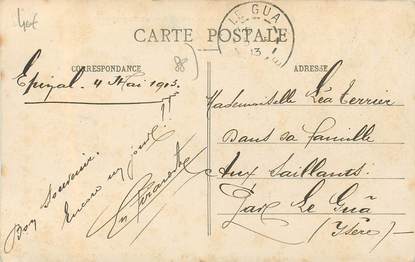 LE GUA
13
CARTE POSTALE
CORRESPONDANCE
ADRESSE
Epinal. 4 Mai 1913.
Bon Souvenir.
Encore un jour!!
Mademoiselle Léa Terrier
Dans sa famille
Aux Saillants.
Par Le Guâ
(Isère)